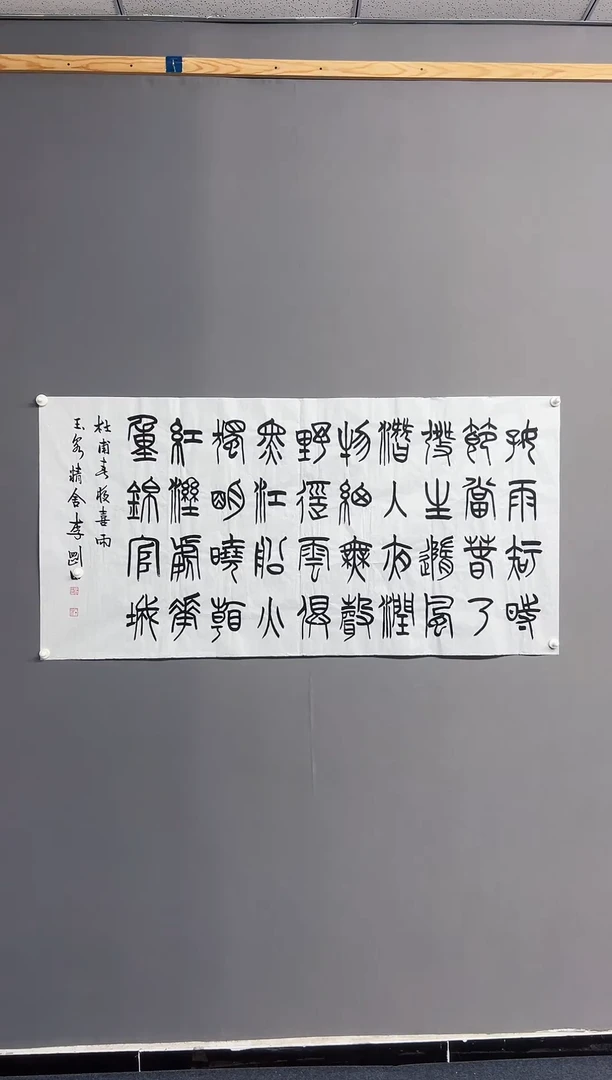 好雨知時
節當春乃
發生隨風
潛入夜潤
物細無聲
野徑雲俱
黑江船火
獨明曉看
紅溼處花
重錦官城
杜甫春夜喜雨
玉精舍李剛